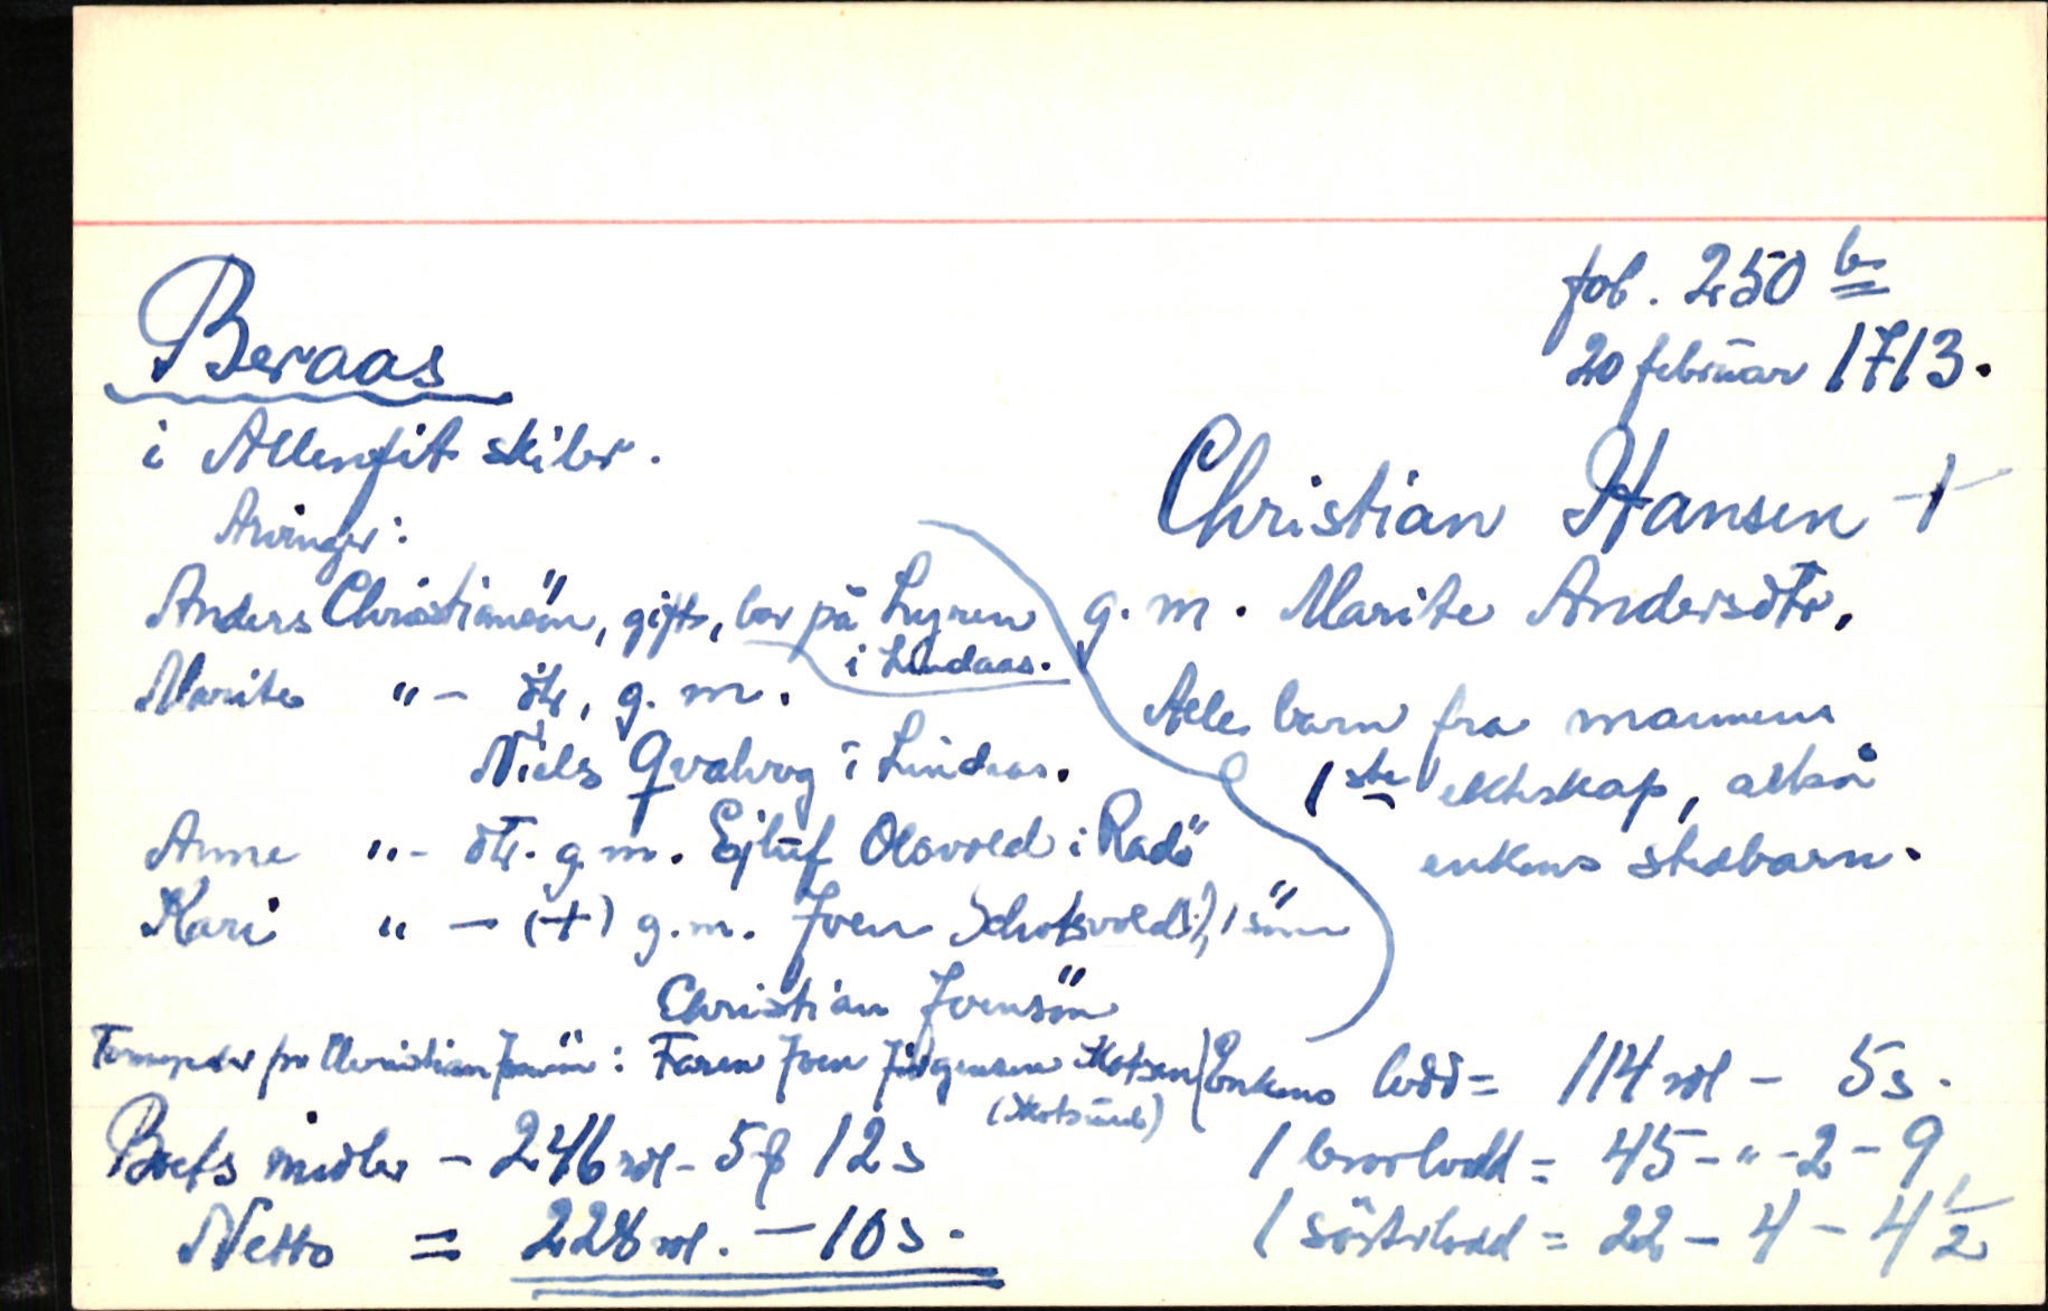 fol. 250 b
20 februar 1713.
Beraas
i Allenfit skibr.
Christian Hansen †
g. m. Marite Andersdtr.
Arvinger:
Anders Christiansön, gift, bor på Lyren
i Lindaas.
Marite "- dtr, g. m.
Niels Qvalvog i Lindaas.
Anne "- dtr. g. m. Ejluf Olsvold i Radö
Kari " - (+) g. m. Joen Schotsvold(?), 1 sön
Christian Joensön
Alle barn fra mannens
1ste ekteskap, altså
enkens stedbarn.
Formynder for Christian Joensön: Faren Joen Jörgensen Skotsen
Boets midler - 246 rdl - 5 ₰ 12 s
Netto = 228 rdl. - 10 s.
Enkens lodd = 114 rdl - 5 s.
1 brorlodd = 45 - " - 2 - 9
1 sösterlodd = 22 - 4 - 4 1/2